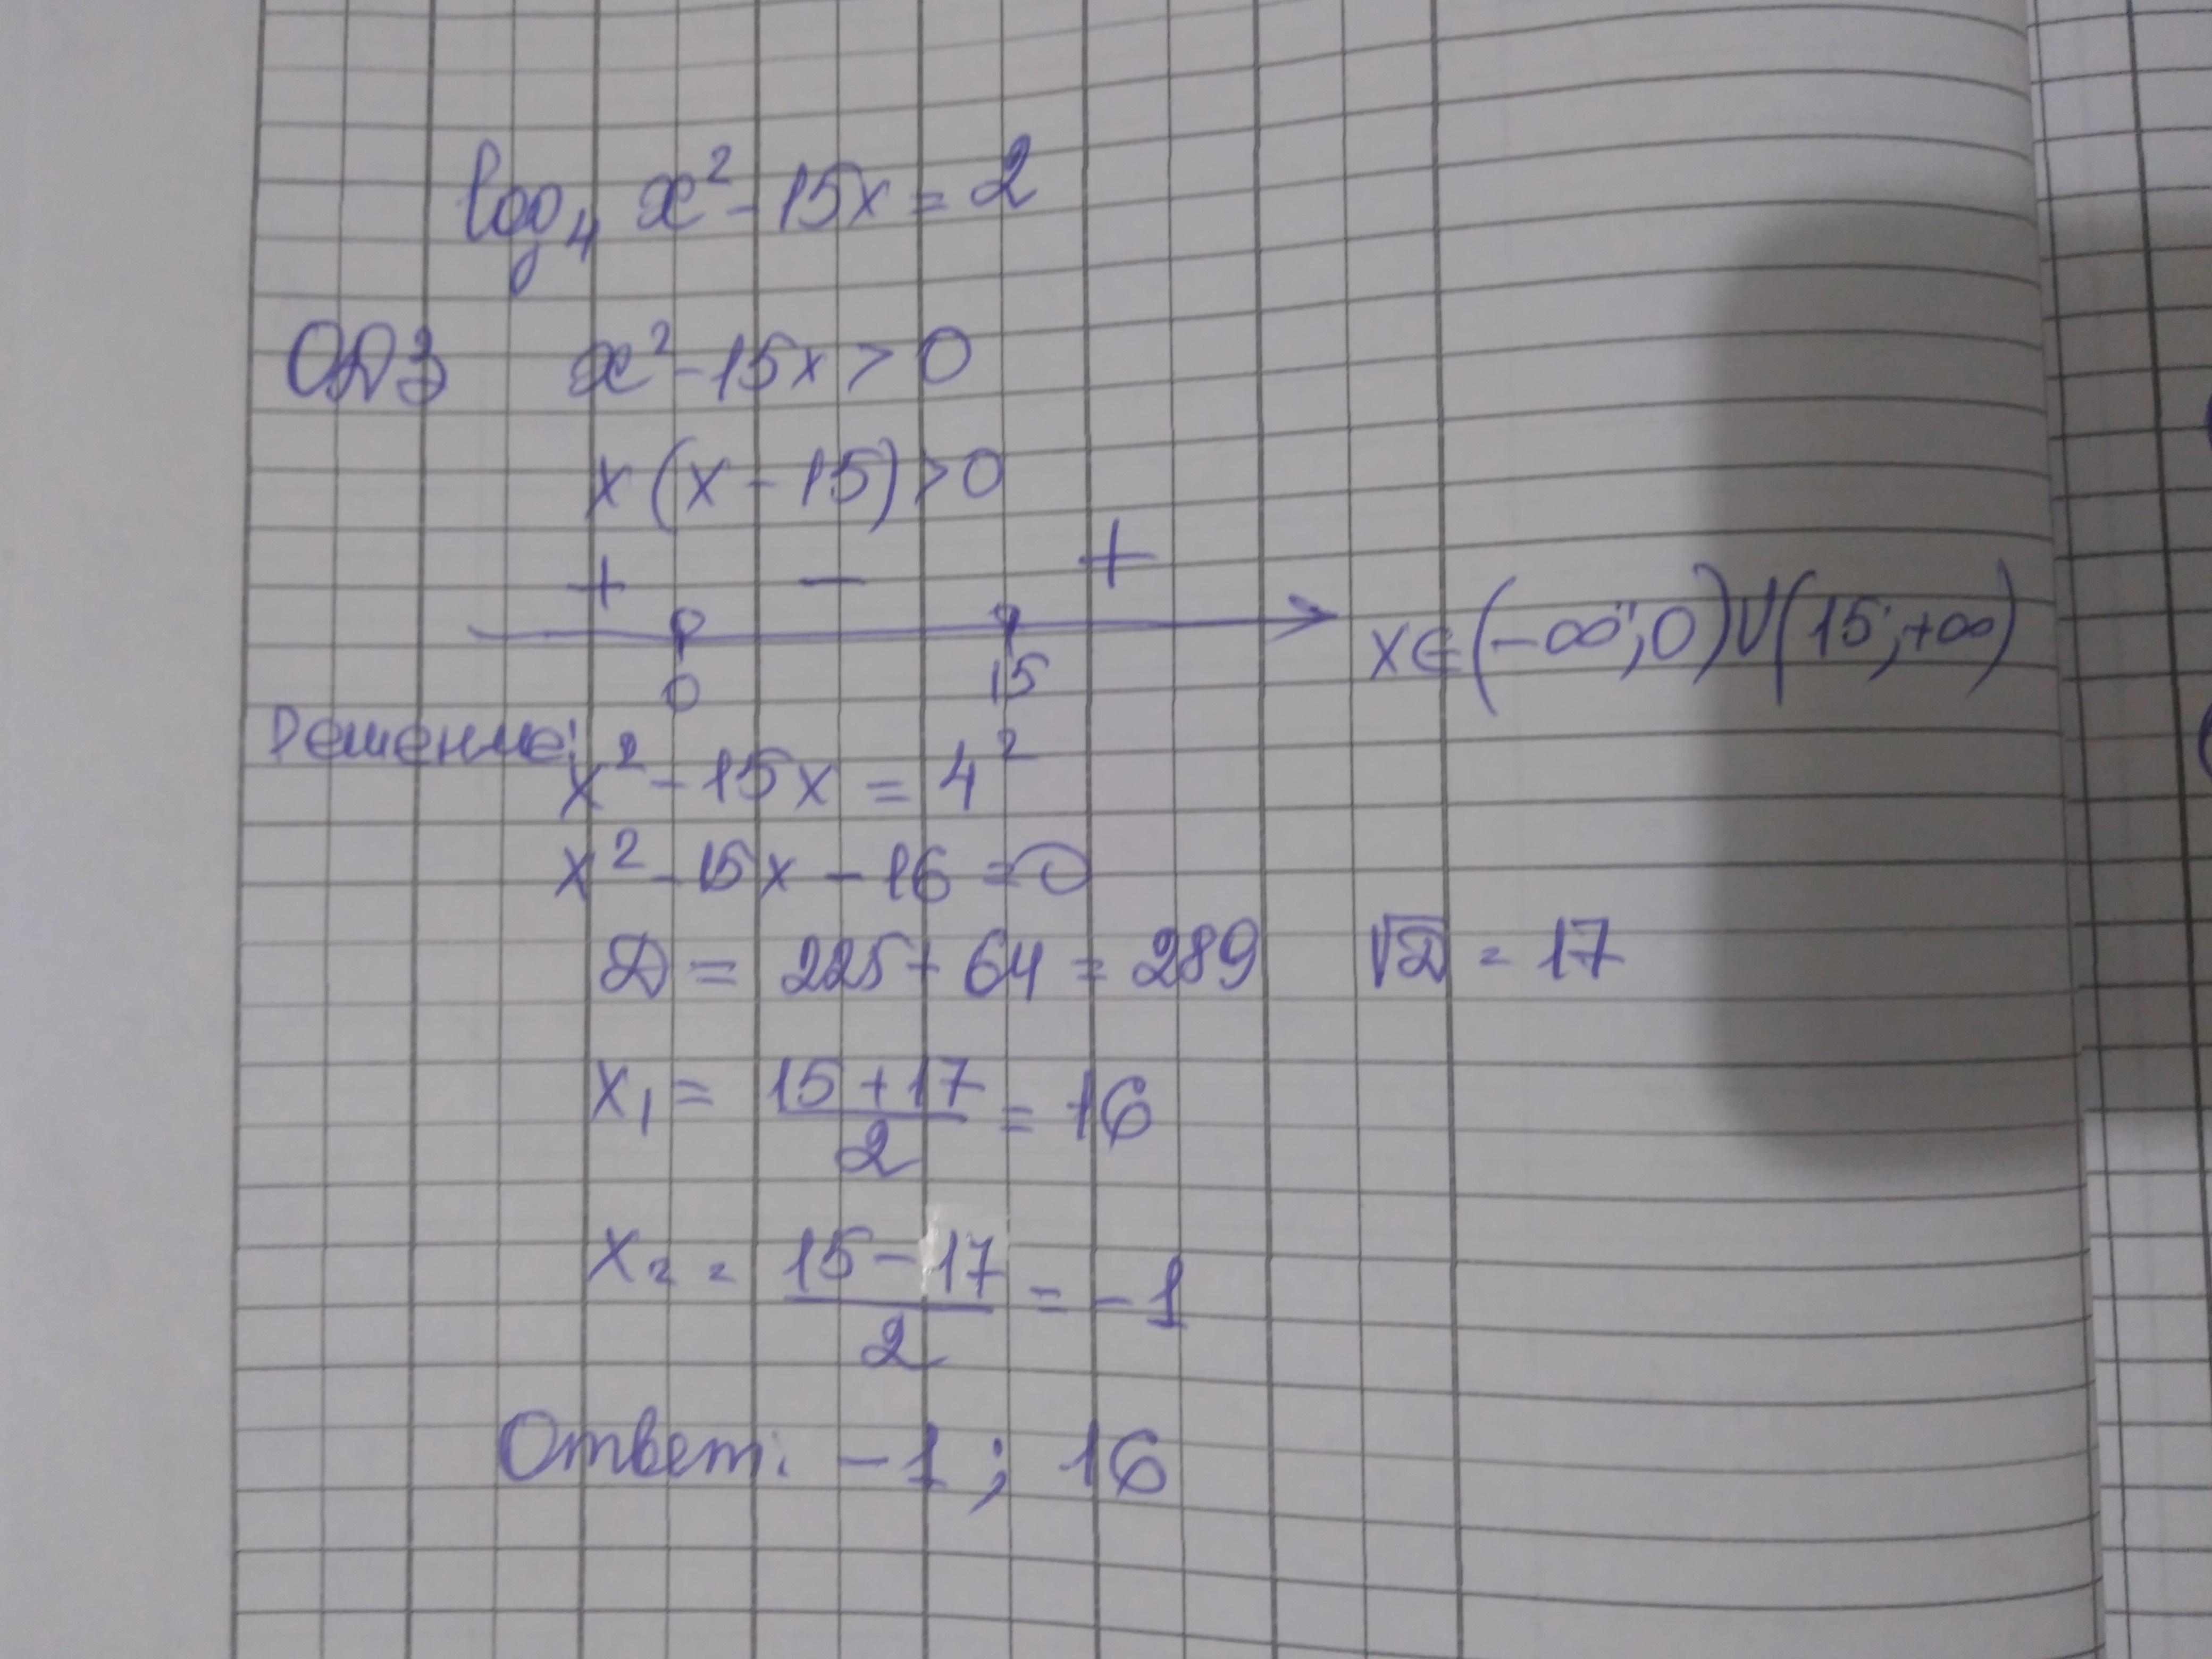 log₄ x² - 15x = 2
ОДЗ x² - 15x > 0
x (x - 15) > 0
+ - +
0 15
x ∈ (-∞; 0) ∪ (15; +∞)
Решение:
x² - 15x = 4²
x² - 15x - 16 = 0
D = 225 + 64 = 289 √D = 17
x₁ = (15 + 17)/2 = 16
x₂ = (15 - 17)/2 = -1
Ответ: -1; 16